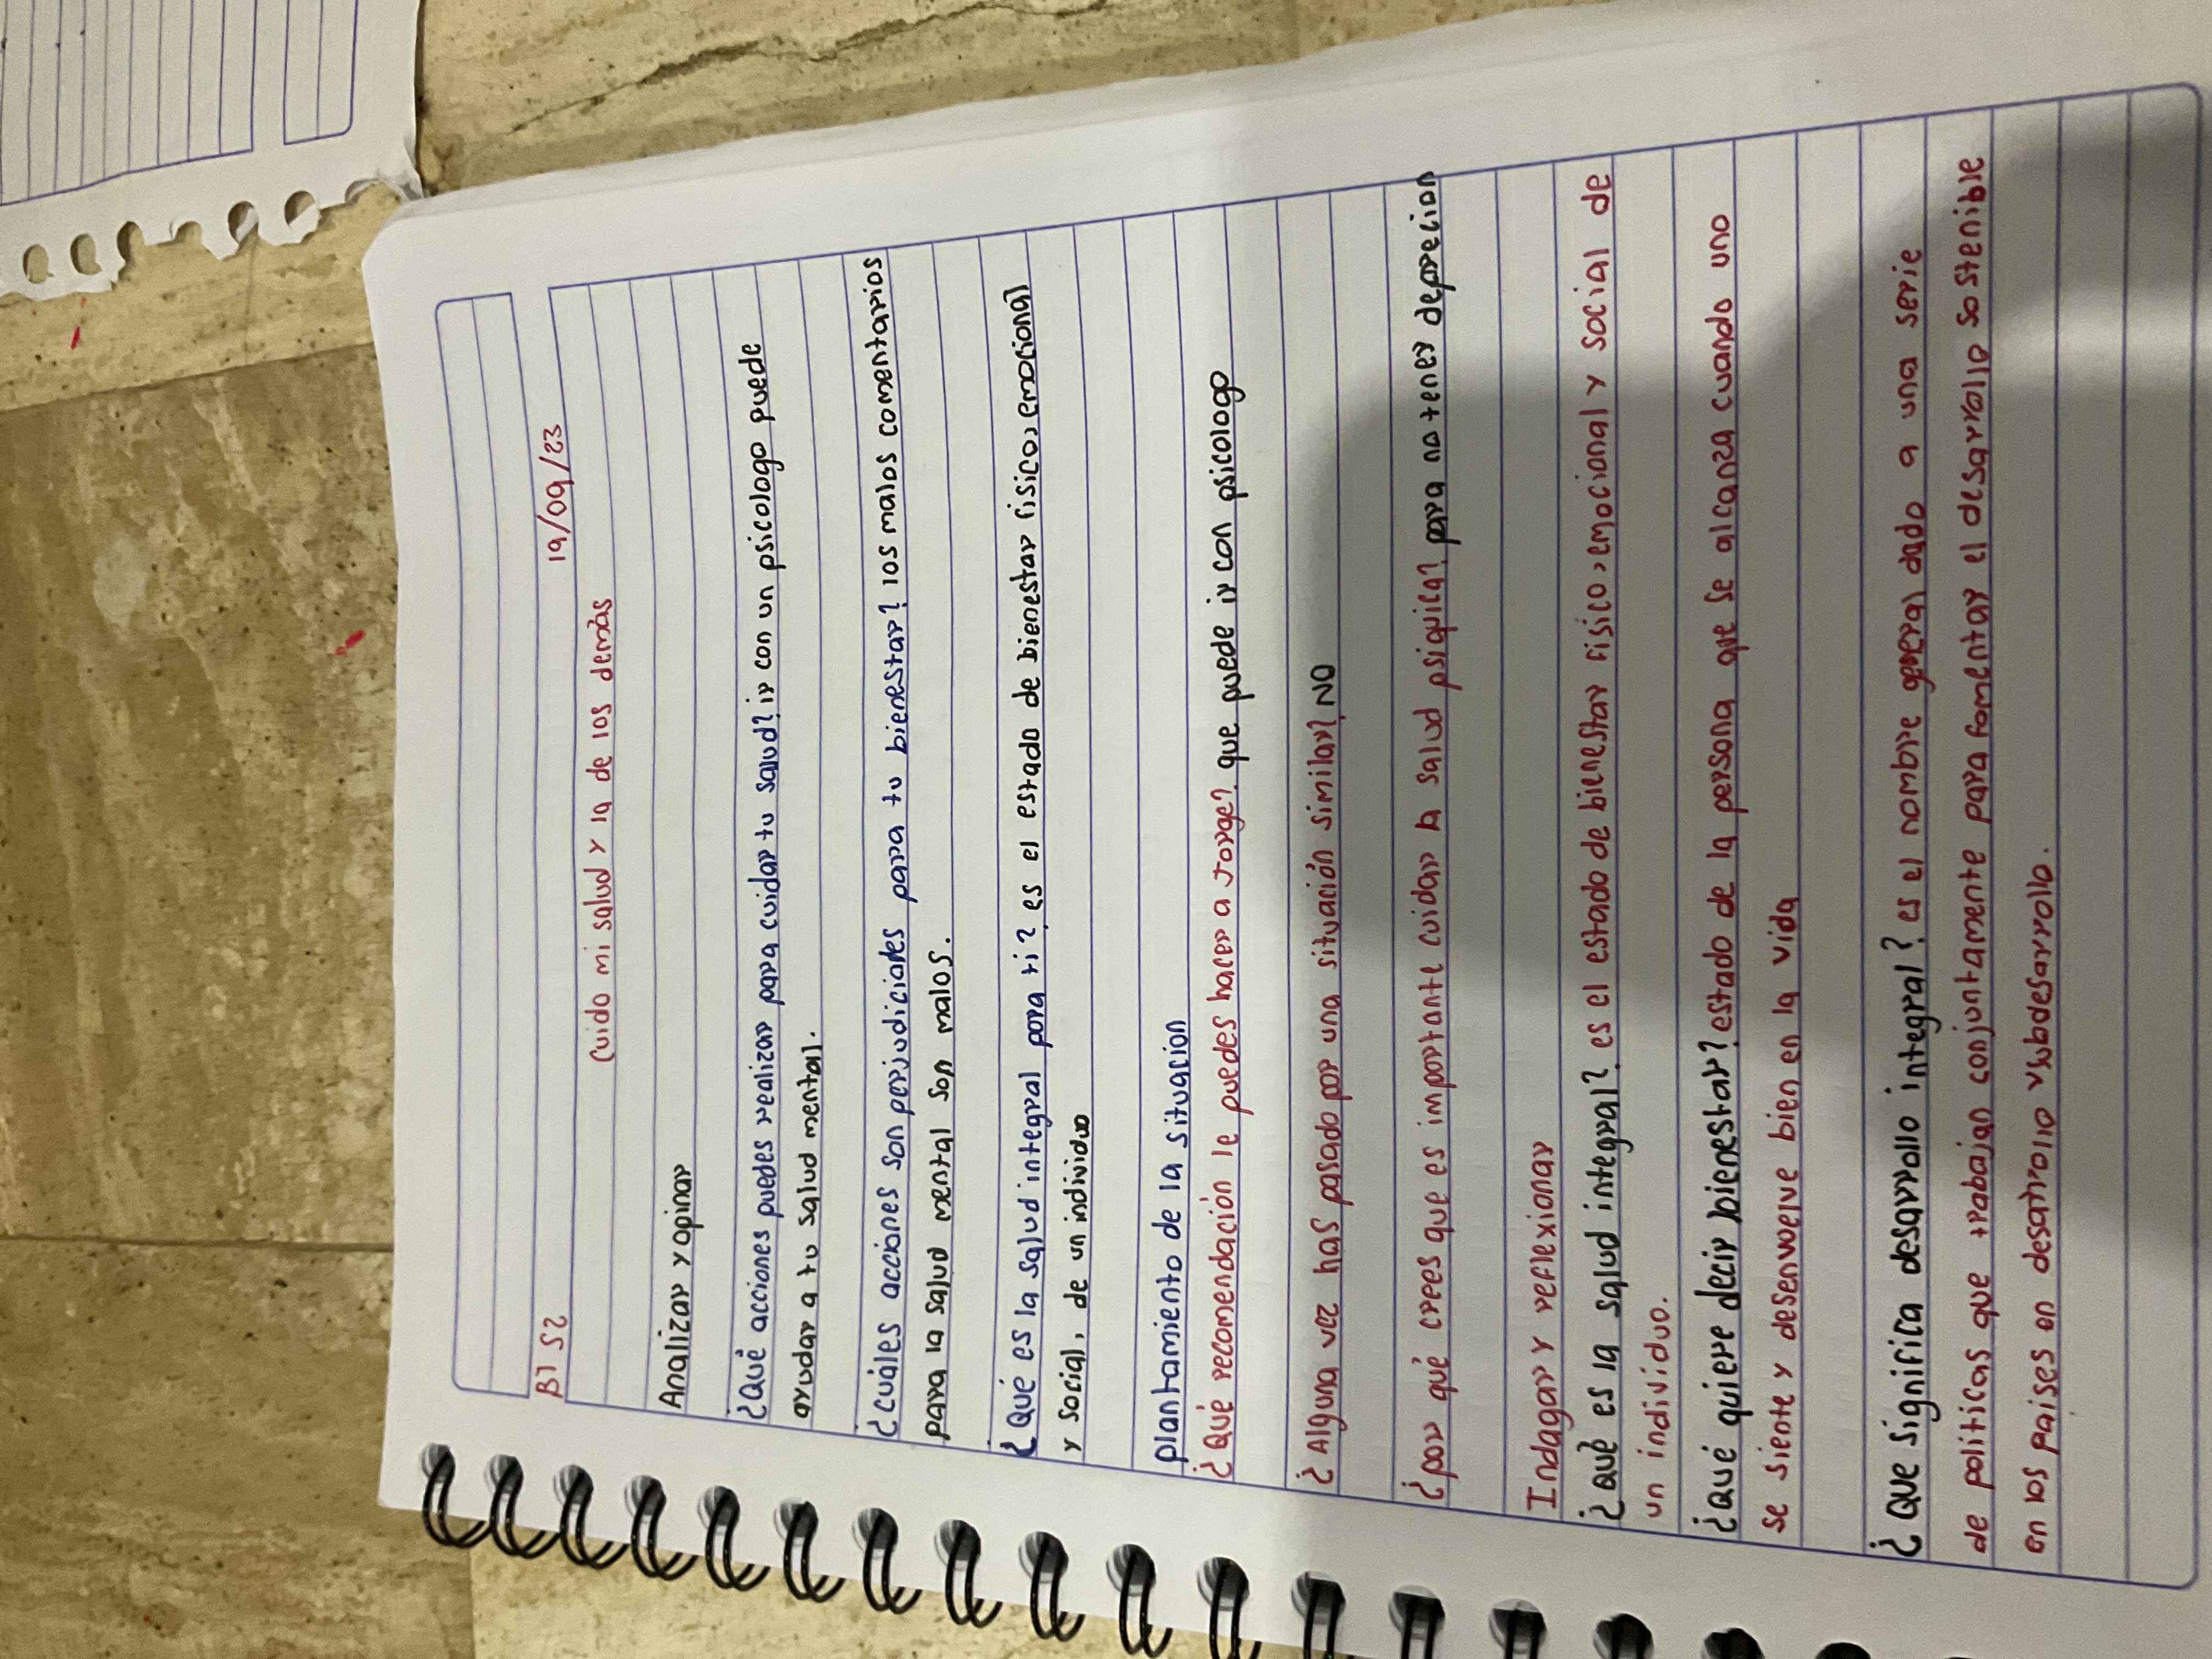 B1 S2 19/09/23
Cuido mi salud y la de los demàs
Analizar y opinar
¿Què acciones puedes realizar para cuidar tu salud? ir con un psicologo puede
ayudar a tu salud mental.
¿Cuàles acciones son perjudiciales para tu bienestar? los malos comentarios
para la salud mental son malos.
¿Què es la salud integral para ti? es el estado de bienestar fisico, emocional
y social, de un individuo
plantamiento de la situacion
¿Què recomendación le puedes hacer a Jorge? que puede ir con psicologo
¿Alguna vez has pasado por una situación similar? NO
¿por què crees que es importante cuidar la salud psiquica? para no
Indagar y reflexionar
¿Què es la salud integral? es el estado de bienestar fisico, emocional y social de
un individuo.
¿Què quiere decir bienestar? estado de la persona que se alcanza cuando uno
se siente y desenvuelve bien en la vida
¿Que significa desarrollo integral? es el nombre general dado a una serie
de politicas que trabajan conjuntamente para fomentar el desarrollo sostenible
en los paises en desarrollo y subdesarrollo.